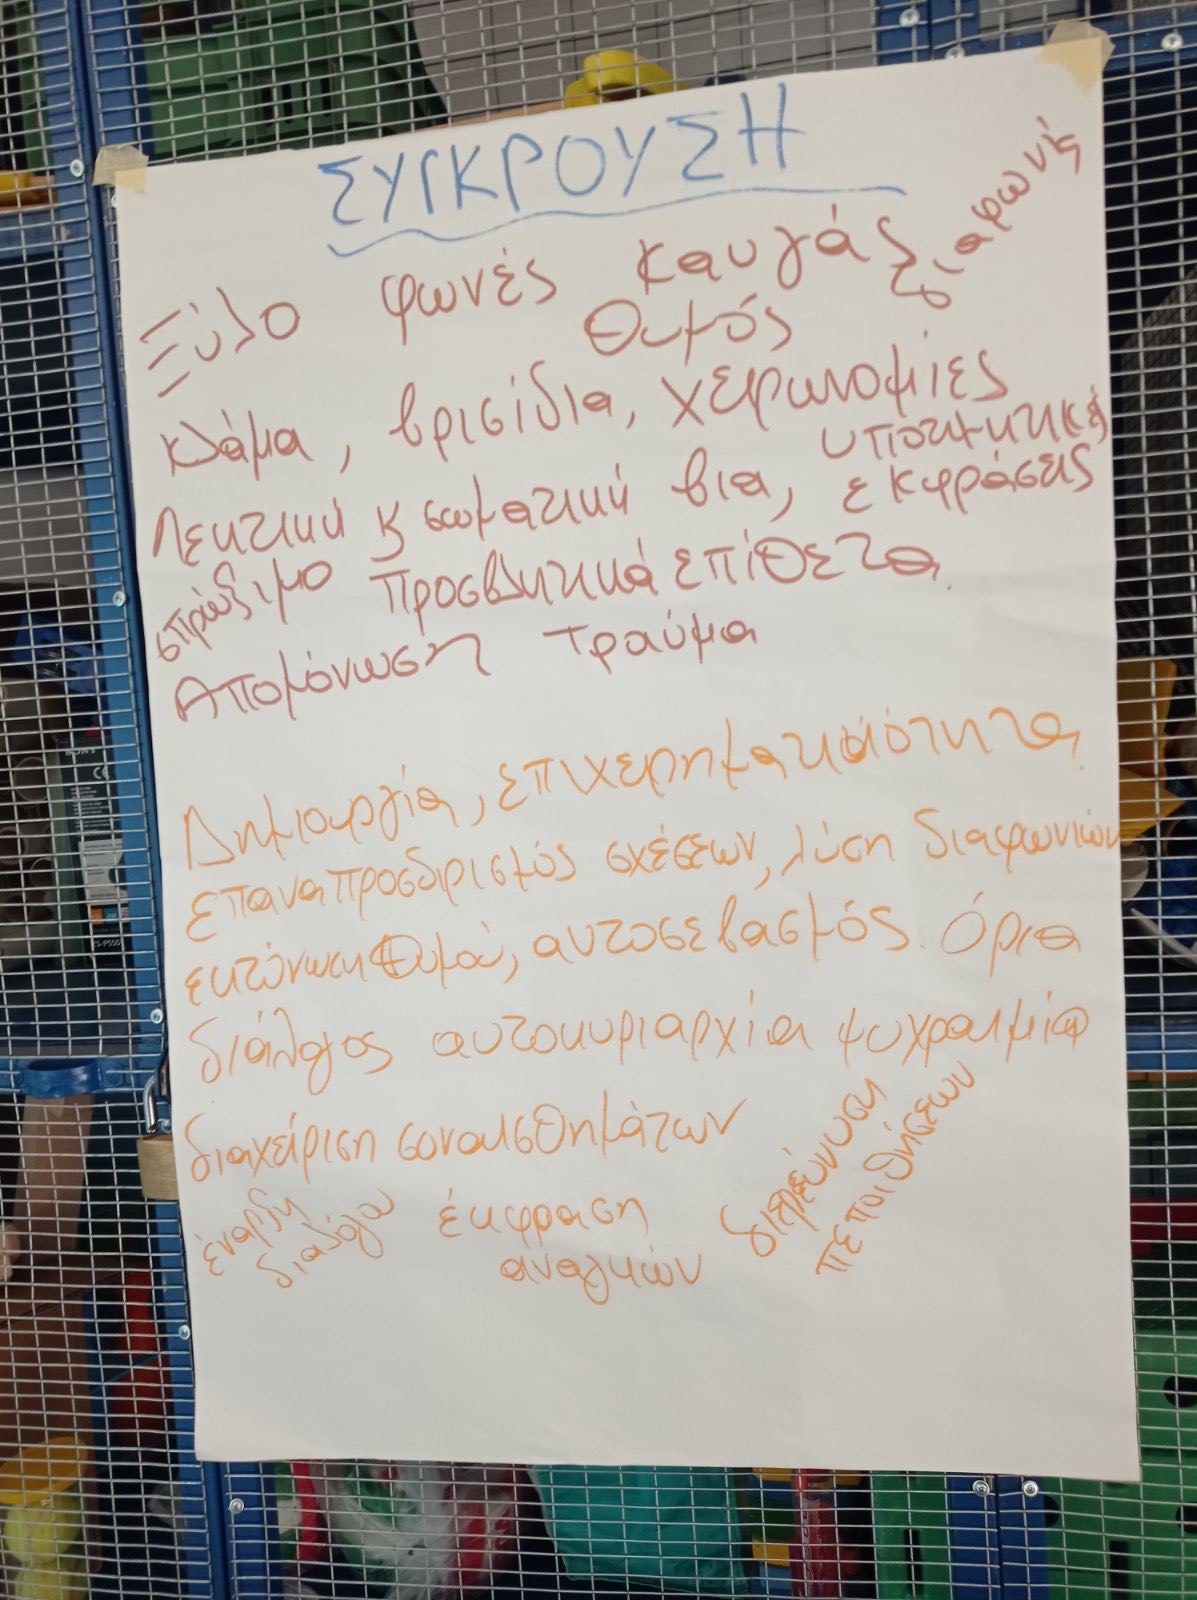 ΣΥΓΚΡΟΥΣΗ
Ξύλο φωνές καυγάς διαφωνίες
Θυμός
κλάμα, βρισίδια, χειρωνομίες
Λεκτική κ σωματική βια, υποτιμητικές εκφράσεις
σπρώξιμο προσβλητικά επίθετα
Απομόνωση τραύμα
Δημιουργία, επιχειρηματικότητα
επαναπροσδιορισμός σχέσεων, λύση διαφωνιών
εκτόνωση θυμού, αυτοσεβασμός. όρια
διάλογος αυτοκυριαρχία ψυχραιμία
διαχείριση συναισθημάτων
έναρξη διαλόγου
έκφραση αναγκών
διερεύνυση πεποιθήσεων
CE
CS-P550